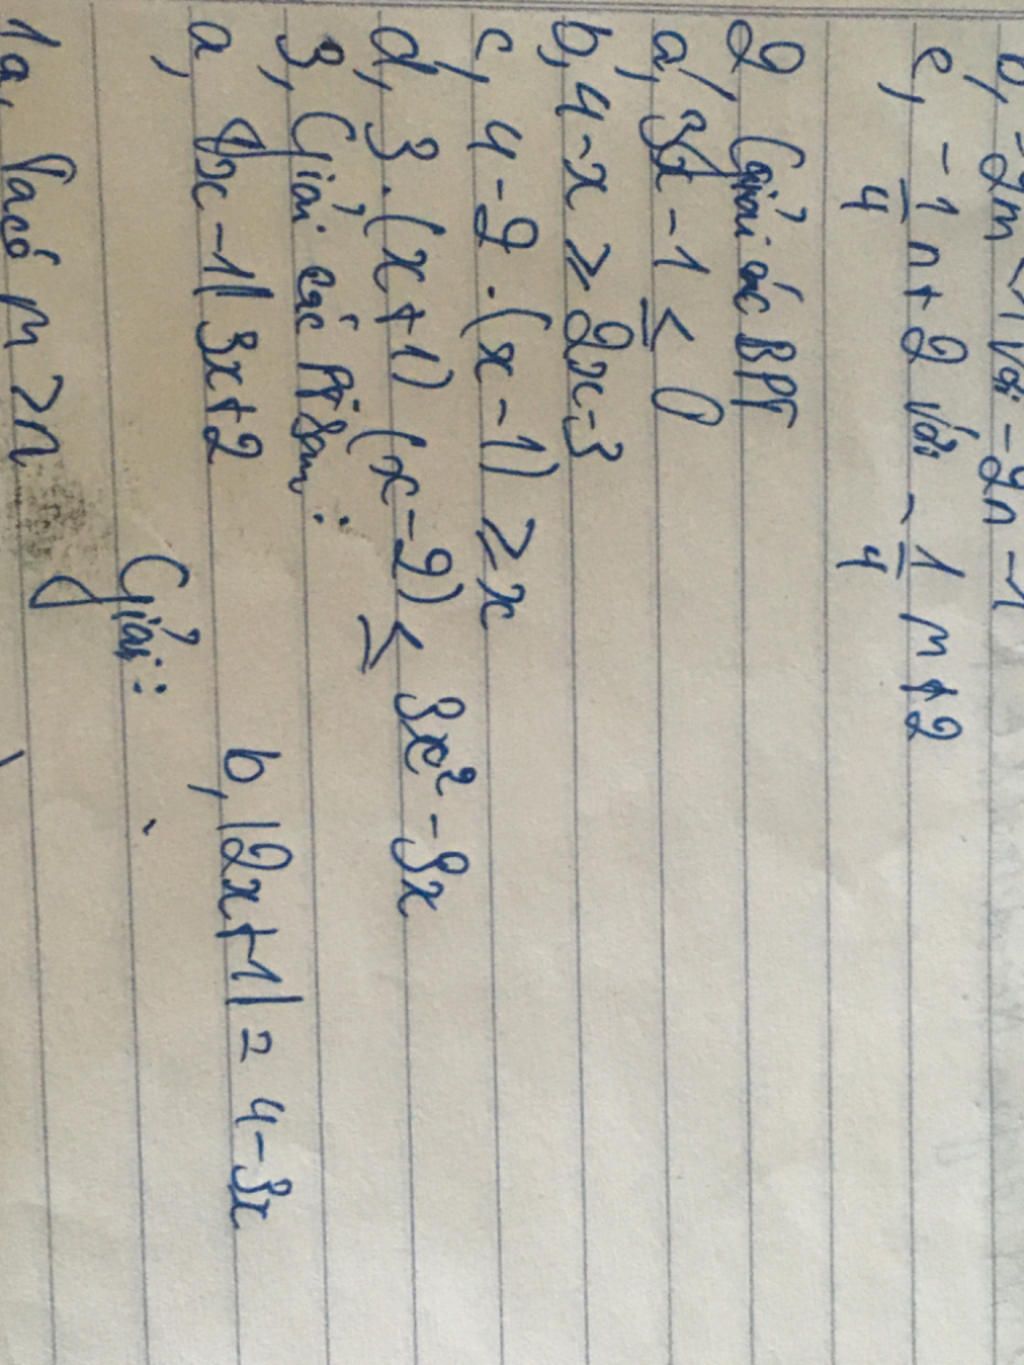 b, -2m < 1 với -2n - 1
e, -1/4 n + 2 với -1/4 m + 2
2, Giải các BPT
a, 3x - 1 ≤ 0
b, 4 - x ≥ 2x - 3
c, 4 - 2 . (x - 1) ≥ x
d, 3 . (x + 1) (x - 2) ≤ 3x² - 3x
3, Giải các PT sau :
a, x - 1| 3x + 2 b, |2x + 1| = 4 - 3x
Giải :
1a, Ta có m > n